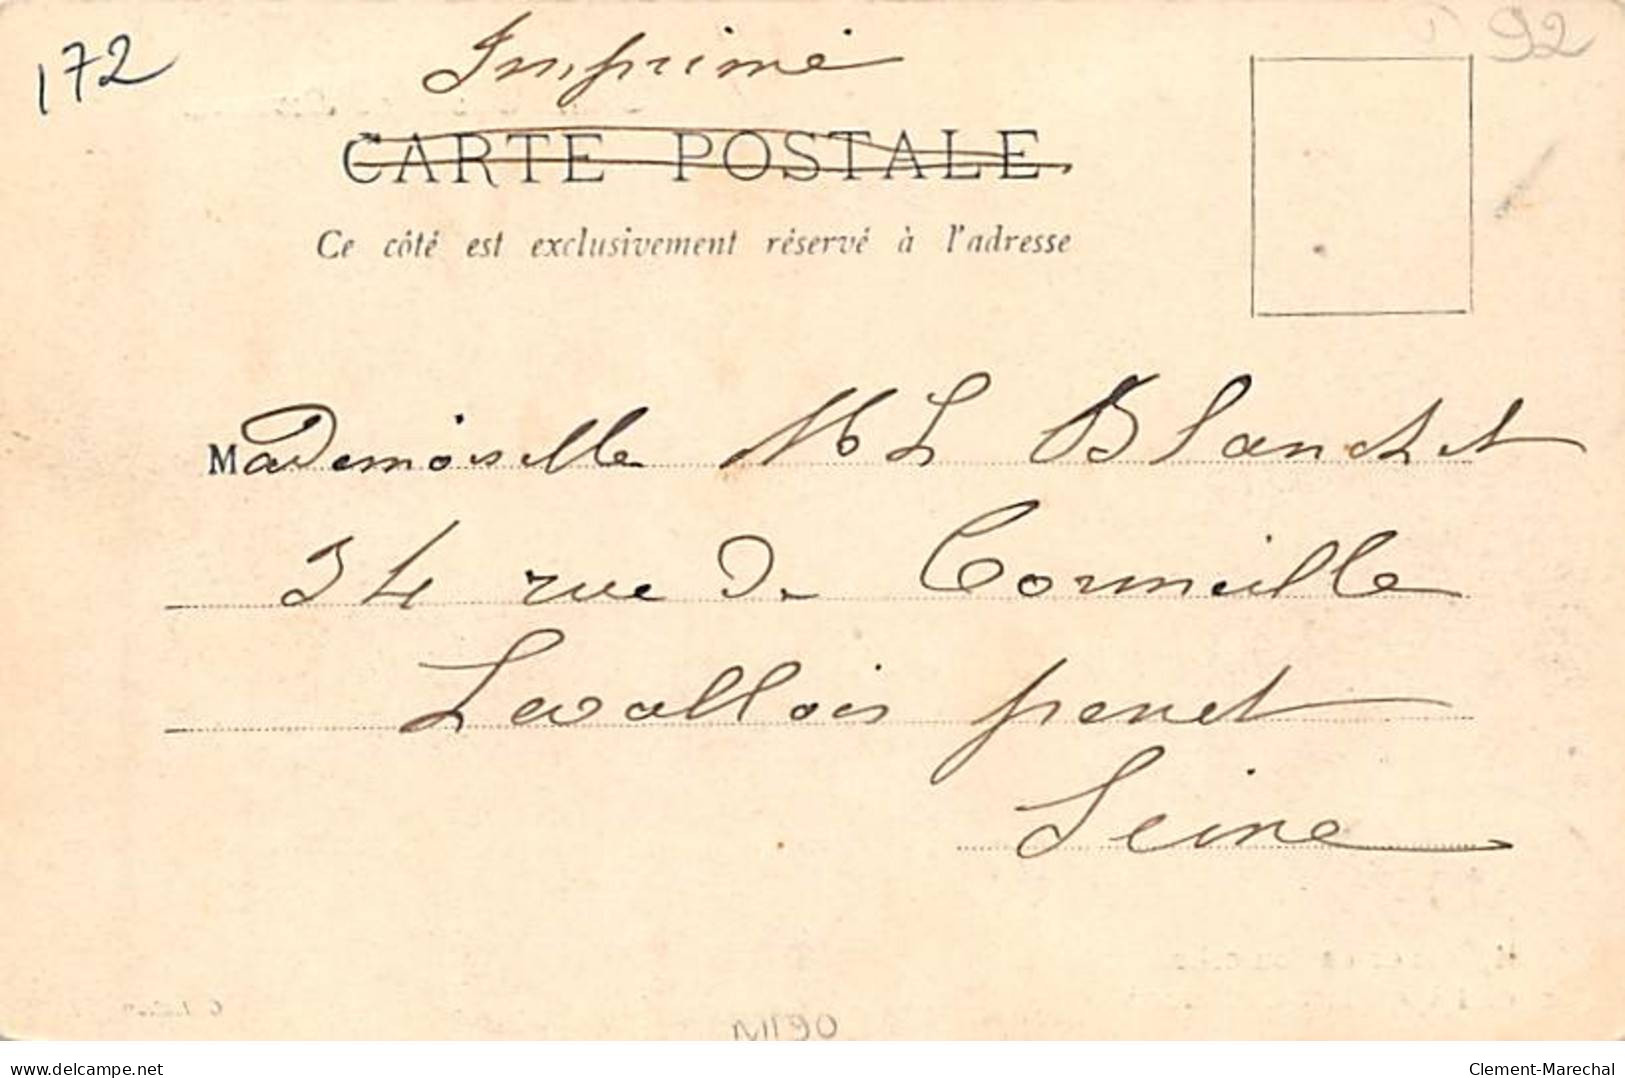 172
Imprimé
92
CARTE POSTALE
Ce côté est exclusivement réservé à l'adresse
Mademoiselle M L Blanchet
34 rue de Cormeille
Levallois perret
Seine
delcampe.net
Clement-Marechal